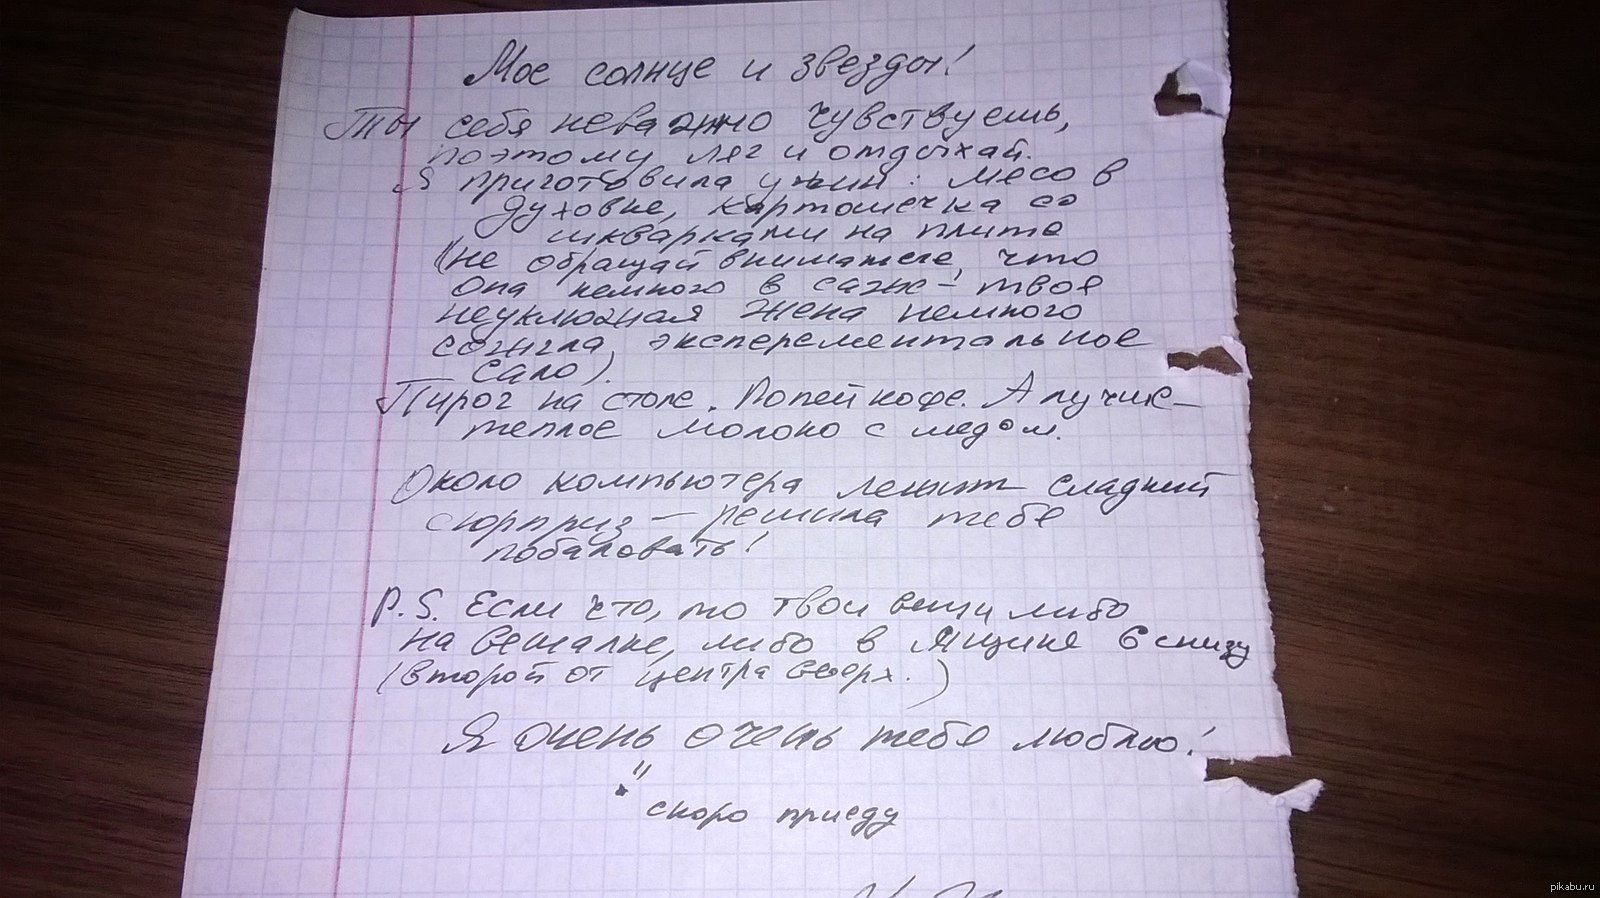 Мое солнце и звезды!
Ты себя неважно чувствуешь,
поэтому ляг и отдыхай.
Я приготовила ужин: мясо в
духовке, картошечка со
шкварками на плите
(не обращай внимание, что
она немного в саже – твоя
неуклюжая жена немного
сожгла экспериментальное
сало).
Пирог на столе. Попей кофе. А лучше –
теплое молоко с медом.
Около компьютера лежит сладкий
сюрприз – решила тебя
побаловать!
P.S. Если что, то твои вещи либо
на вешалке, либо в ящике снизу
(второй от центра вверх.)
Я очень очень тебя люблю!
" скоро приеду
pikabu.ru